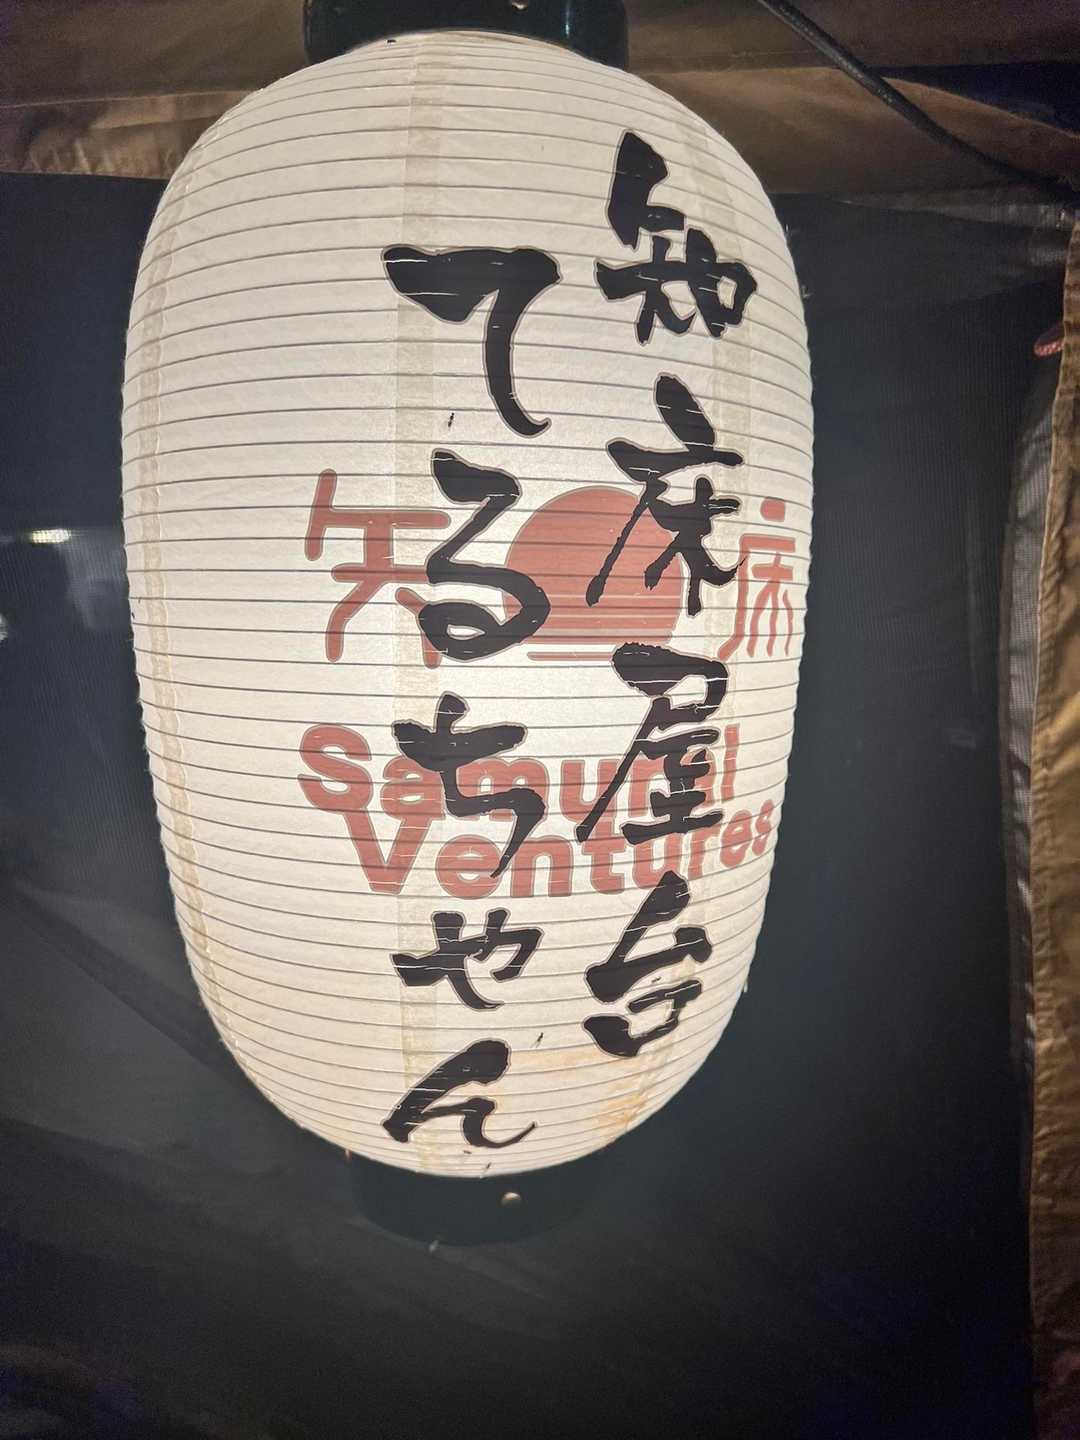 知床屋台
てるちゃん
知床
Samurai
Ventures